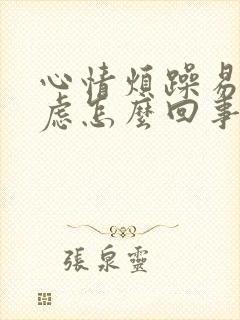 心情煩躁易
慮怎麼回事
張泉靈